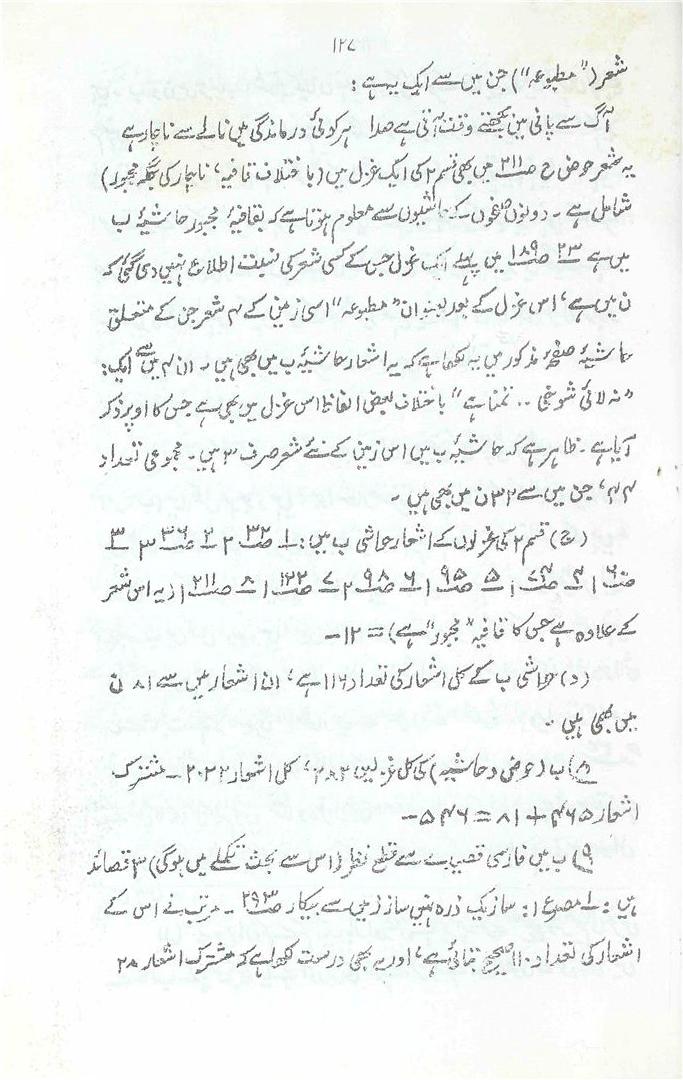 ۱۲۷
شعر ("مطبوعہ") جن میں سے ایک یہ ہے :
آگ سے پانی میں بجھتے وقت آتی ہے صدا ہر کوئی درماندگی میں نالے سے ناچار ہے
یہ شعر حوض ح صـ ۲۱۱ میں بھی قسم ۲ کی ایک غزل میں (باختلاف قافیہ، ناچار کی جگہ مجبور)
شامل ہے ۔ دونوں صفحوں کے حاشیوں سے معلوم ہوتا ہے کہ بقافیۂ مجبور حاشیۂ ب
میں ہے ۲۳ صـ ۱۸۹ میں پہلے ایک غزل جس کے کسی شعر کی نسبت اطلاع نہیں دی گئی کہ
ن میں ہے، اس غزل کے بعد بعنوان "مطبوعہ" اسی زمین کے ۴ شعر جن کے متعلق
حاشیۂ صفحۂ مذکور میں یہ لکھا ہے کہ یہ اشعار حاشیۂ ب میں بھی ہیں ۔ ان ۴ میں سے ایک :
"نہ لائی شوخی .. تمنا ہے" باختلاف بعض الفاظ اس غزل میں بھی ہے جس کا اوپر ذکر
آیا ہے ۔ ظاہر ہے کہ حاشیۂ ب میں اس زمین کے نئے شعر صرف ۳ ہیں ۔ مجموعی تعداد
۴۴، جن میں سے ۳۲ ن میں بھی ہیں ۔
(ج) قسم ۲ کی غزلوں کے اشعار حواشی ب میں : ۱ صـ ۳۲ ۲ ۲ صـ ۳۶ ۳ ۳
۱ ۴ ۱ ۵ صـ ۹۵ ۱ ۶ صـ ۹۸ ۲ ۷ صـ ۱۲۲ ۱ ۸ صـ ۲۱۱ ۱ (یہ اس شعر
کے علاوہ ہے جس کا قافیہ "مجبور" ہے) = ۱۲ ۔
(د) حواشی ب کے کل اشعار کی تعداد ۱۱۶ ہے، ان اشعار میں سے ۸۱ ن
میں بھی ہیں ۔
۸) ب (حوض و حاشیہ) کی کل غزلیں ۲۸۲، کل اشعار ۲۰۲۲ ۔ مشترک
اشعار ۴۶۵ + ۸۱ = ۵۴۶ ۔
۹) ب میں فارسی قصیدے سے قطع نظر (اس سے بحث تکملے میں ہوگی) ۳ قصائد
ہیں : ۱ مصرع ۱ : ساز یک ذرہ نہیں ساز زمیں سے بیکار صـ ۲۹۳ ۔ مرتب نے اس کے
اشعار کی تعداد ۱۱۰ صحیح بتائی ہے، اور یہ بھی درست لکھا ہے کہ مشترک اشعار ۲۸